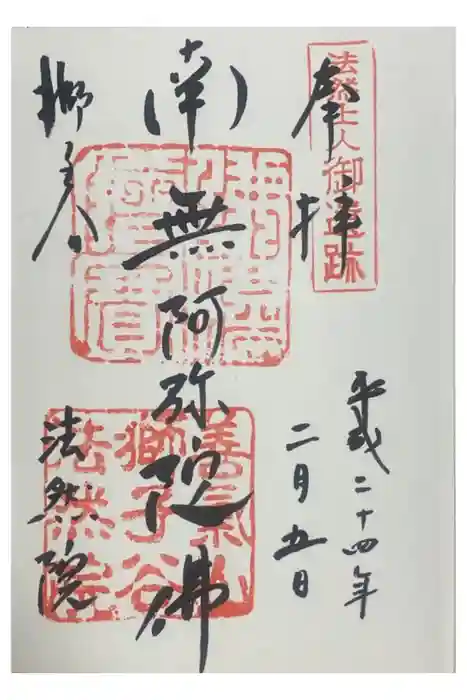 法然上人御遺跡
奉拝
平成二十四年
二月五日
南無阿弥陀佛
善氣山
獅子谷
法然院
獅子谷
法然院